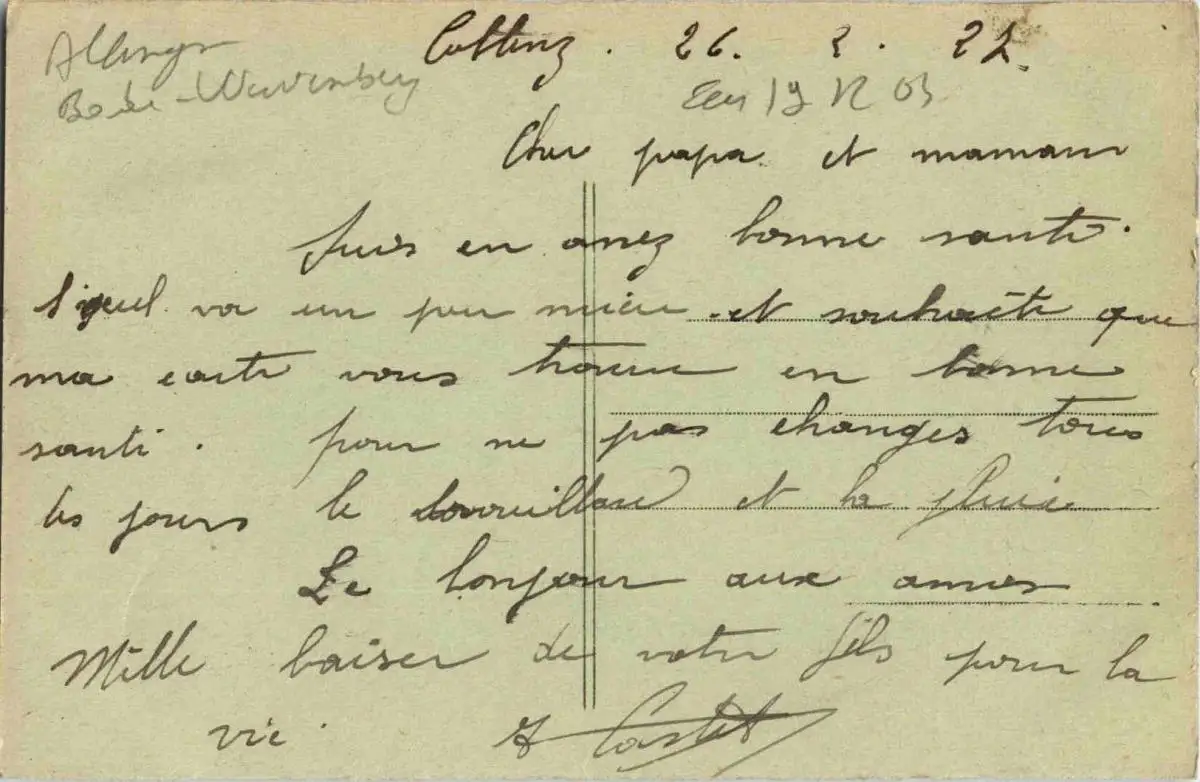 Coblenz. 26. 2. 22.
Cher papa et maman
suis en assez bonne santé.
va un peu mieu et souhaite que
ma carte vous trouve en bonne
santé. pour ne pas changes tous
les jours le brouillard et la pluie
Le bonjour aux amis
Mille baiser de votre fils pour la
vie.
Castet